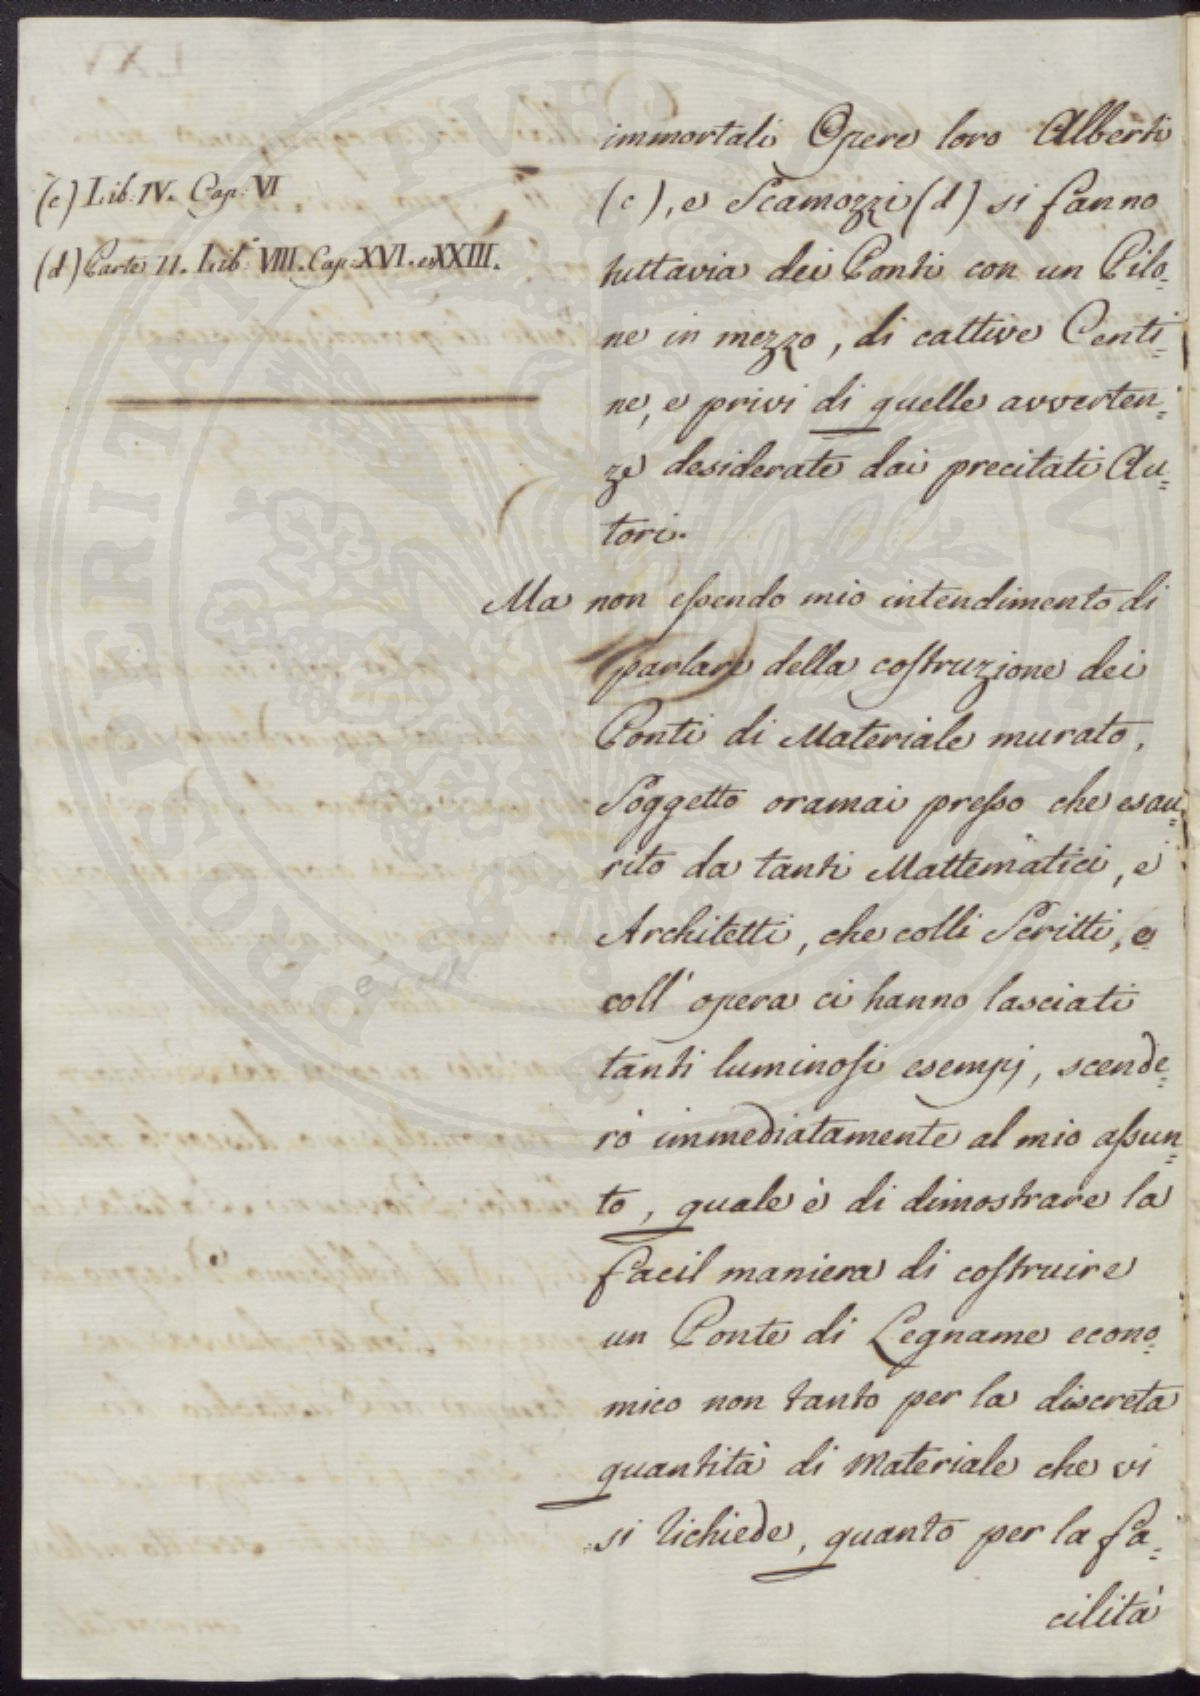 (c) Lib. IV. Cap. VI
(d) Parte II. Lib. VIII. Cap. XVI. e XXIII.
immortali Opere loro Alberti
(c), e Scamozzi (d) si fanno
tuttavia dei Ponti con un Pilo=
ne in mezzo, di cattive Centi=
ne, e privi di quelle avverten=
ze desiderate dai precitati Au=
tori.
Ma non eſsendo mio intendimento di
parlare della coſtruzione dei
Ponti di Materiale murato,
Soggetto oramai preſso che esau=
rito da tanti Mattematici, e
Architetti, che colli Scritti, e
coll' opera ci hanno lasciati
tanti luminoſi esempj, scende=
rò immediatamente al mio aſsun=
to, quale è di dimostrare la
facil maniera di coſtruire
un Ponte di Legname econo=
mico non tanto per la discreta
quantità di Materiale che vi
si richiede, quanto per la fa=
cilità
PROSPERITATI PVBLICAE